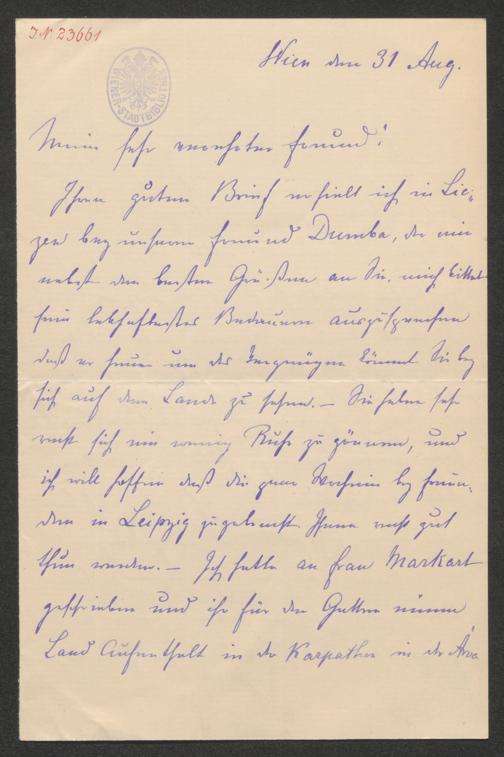 J.N. 23661
WIENER-STADTBIBLIOTHEK
Wien den 31 Aug.
Mein sehr verehrter Freund!
Ihren guten Brief erhielt ich in Lie-
zen bey unserm Freund Dumba, der mir
nebst den besten Grüßen an Sie, mich bittet
sein lebhaftestes Bedauern auszusprechen
daß er heuer um das Vergnügen kömmt Sie bey
sich auf dem Lande zu sehen. – Sie haben sehr
recht sich ein wenig Ruhe zu gönnen, und
ich will hoffen daß die zwei Wochen bey Freun-
den in Leipzig zugebracht Ihnen recht gut
thun werden. – Ich hatte an Frau Markart
geschrieben und ihr für den Gatten einen
Land Aufenthalt in den Karpathen in der Arva